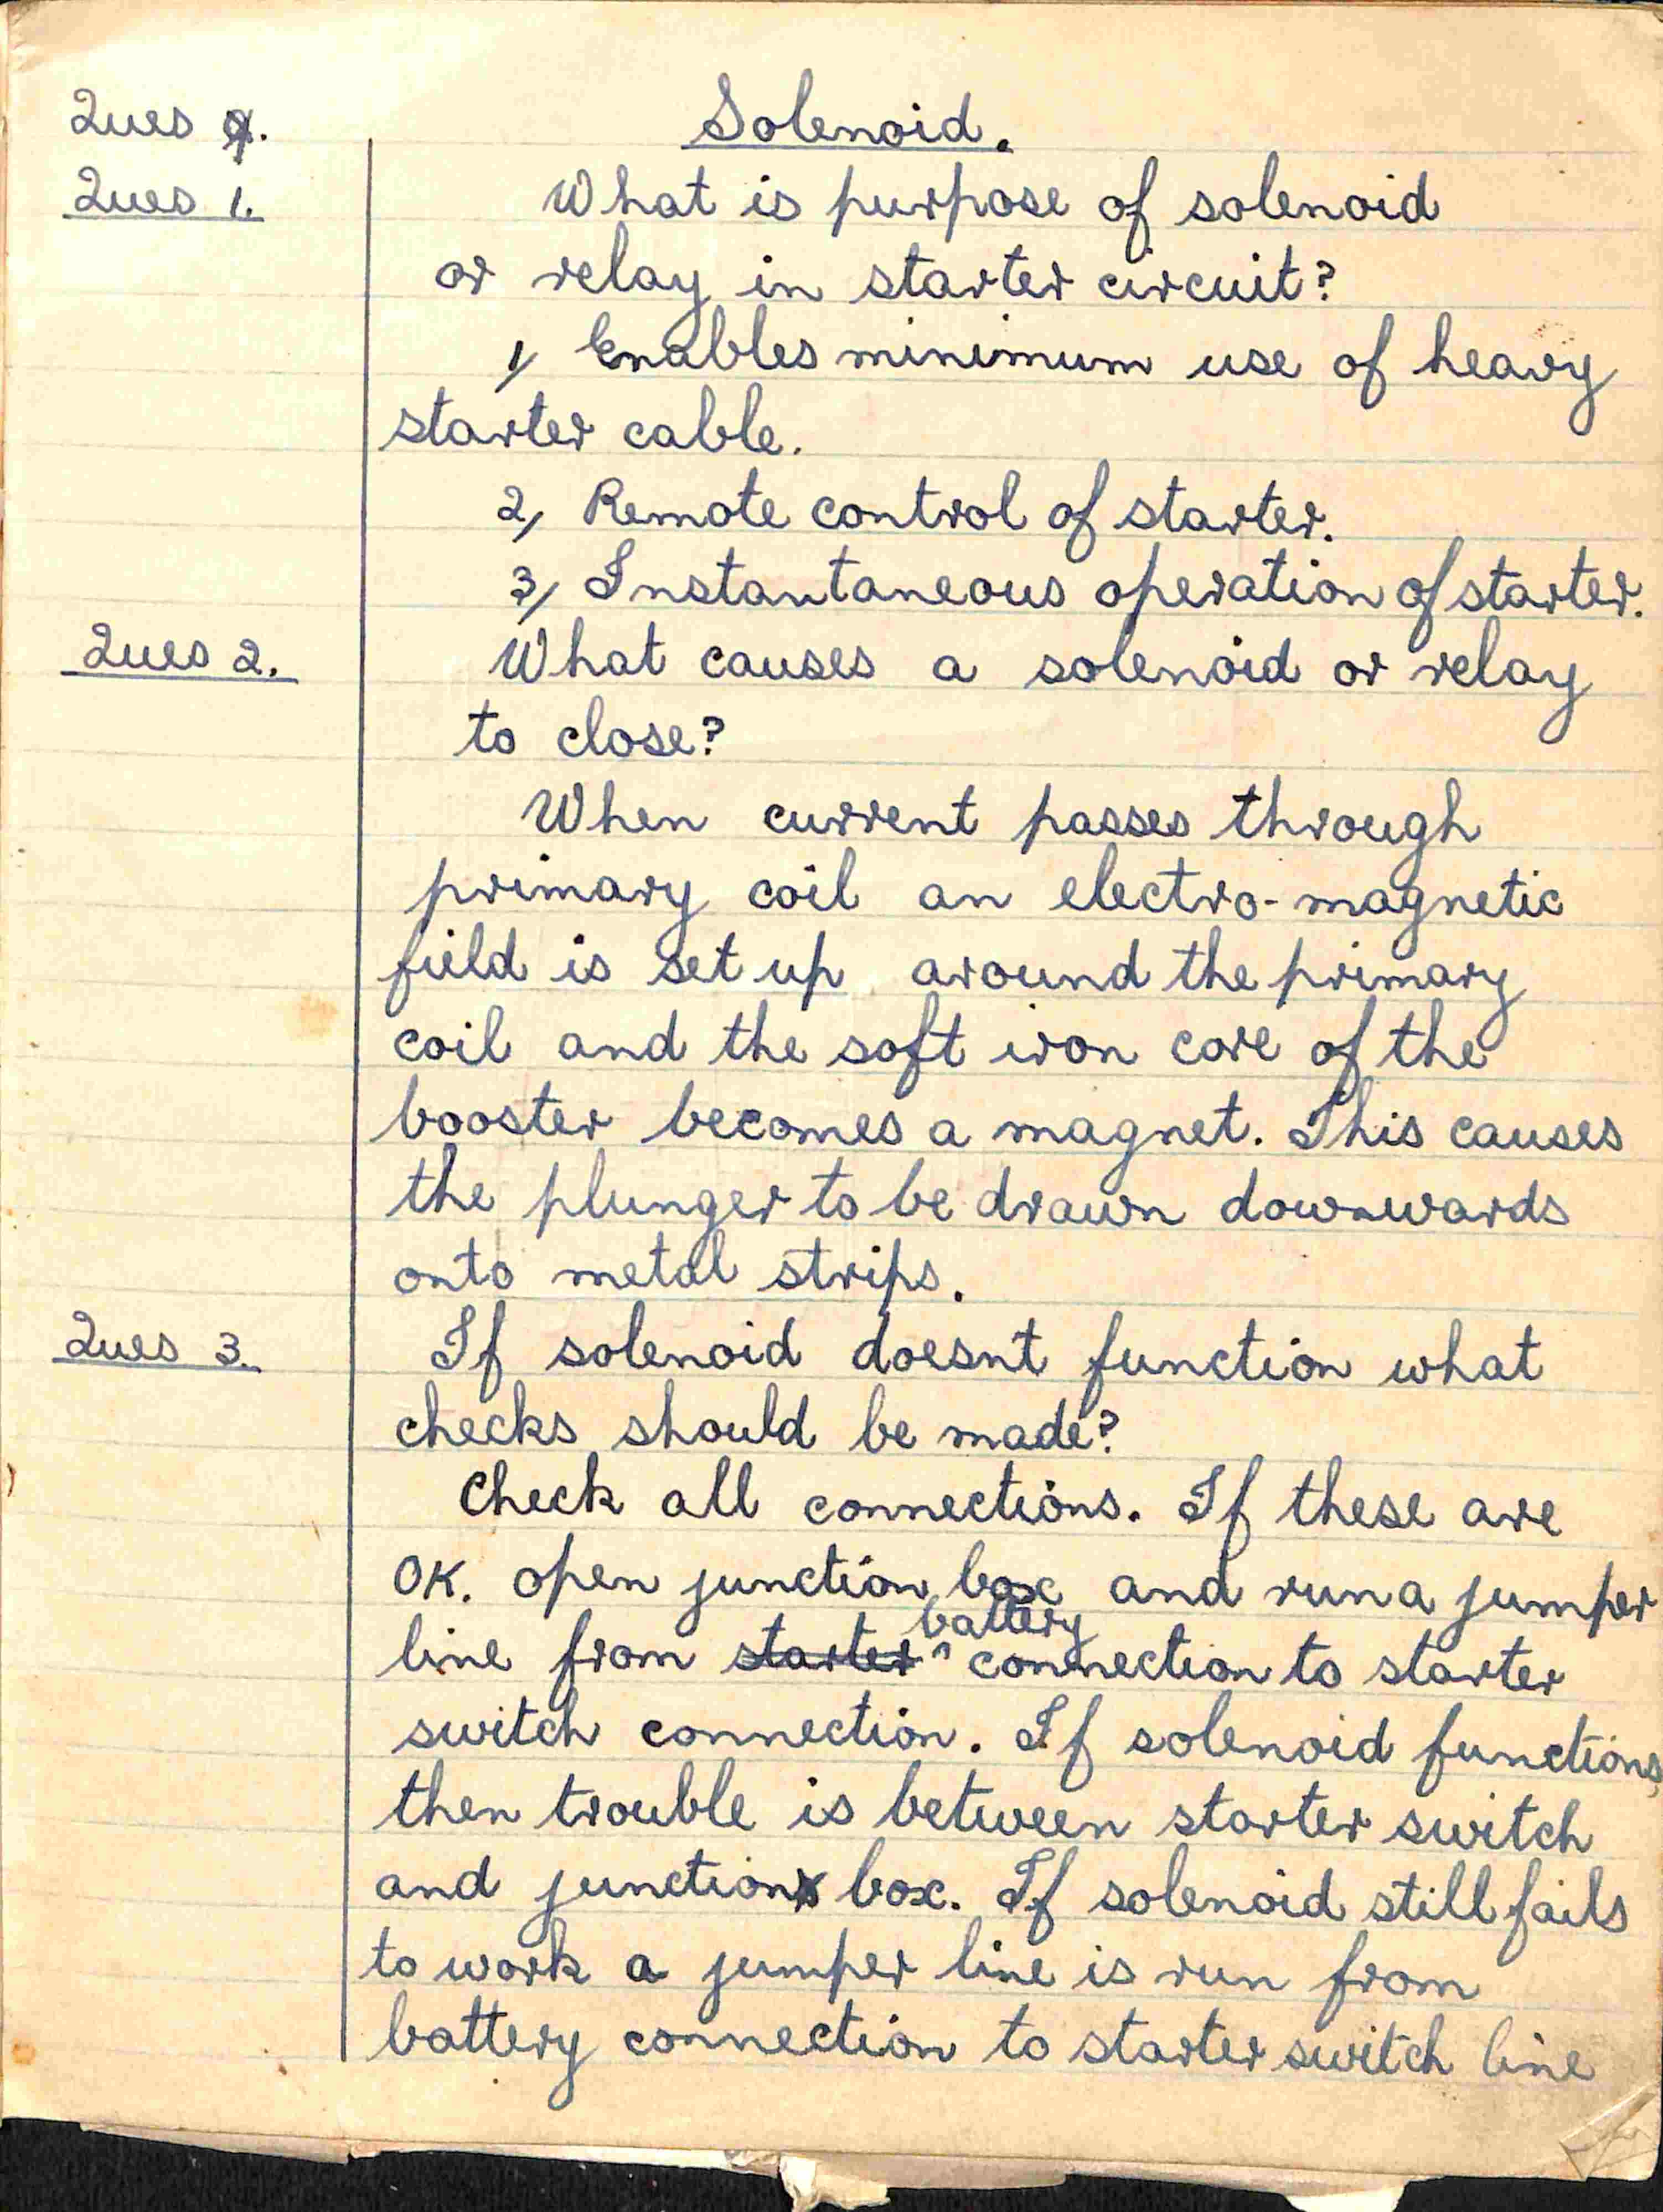 Ques
Solenoid.
Ques 1.
What is purpose of solenoid
or relay in starter circuit?
1, Enables minimum use of heavy
starter cable.
2, Remote control of starter.
3, Instantaneous operation of starter.
Ques 2.
What causes a solenoid or relay
to close?
When current passes through
primary coil an electro-magnetic
field is set up around the primary
coil and the soft iron core of the
booster becomes a magnet. This causes
the plunger to be drawn downwards
onto metal strips.
Ques 3.
If solenoid doesnt function what
checks should be made?
Check all connections. If these are
OK. open junction box and run a jumper
battery
line from starter ^ connection to starter
switch connection. If solenoid functions,
then trouble is between starter switch
and junction box. If solenoid still fails
to work a jumper line is run from
battery connection to starter switch line